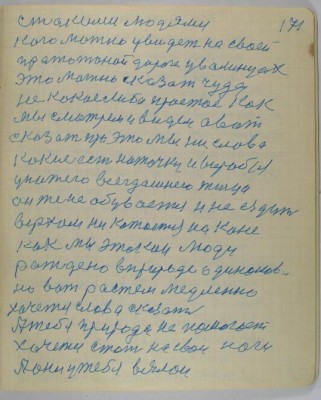 с такими людями 171
кого можно увидет на своей
протоптаной дороге у в
это можно сказат чудо
не какое либо простое как
мы смотрем и видем а вот
сказат про это мы ни слова
какие ест на точку и
у него всегдашнего птица
он же не обувается и не ездит
верхом ни катается на коне
как мы этакои люди
рождено в природе одиноков-
но вот растем медленно
хочется слова сказат
А тебя природа не помогает
хочется стот на свои ноги
А они у тебя вялои